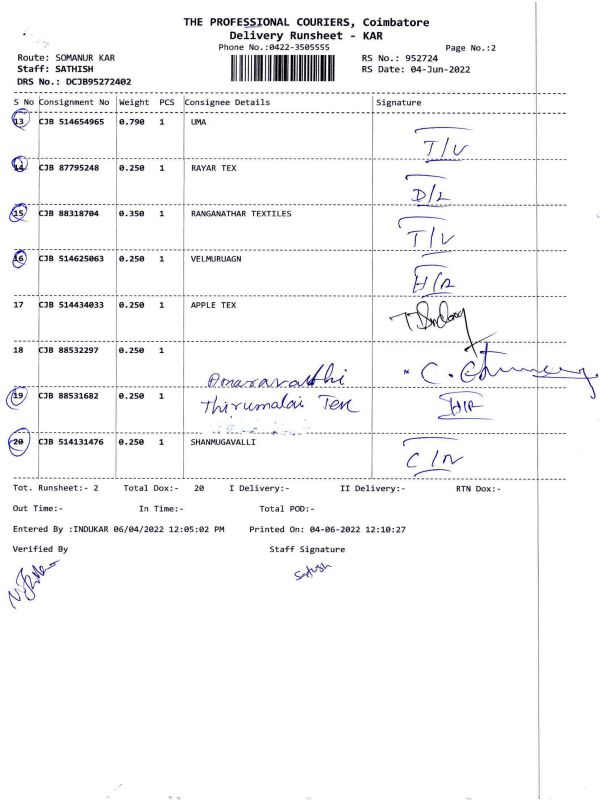 THE PROFESSIONAL COURIERS, Coimbatore
Delivery Runsheet - KAR
Phone No.:0422-3505555
Page No.:2
Route: SOMANUR KAR
RS No.: 952724
Staff: SATHISH
RS Date: 04-Jun-2022
DRS No.: DCJB95272402
S No Consignment No Weight PCS Consignee Details Signature
13 CJB 514654965 0.790 1 UMA
T/V
14 CJB 87795248 0.250 1 RAYAR TEX
D/L
15 CJB 88318704 0.350 1 RANGANATHAR TEXTILES
T/V
16 CJB 514625063 0.250 1 VELMURUAGN
H/R
17 CJB 514434033 0.250 1 APPLE TEX
18 CJB 88532297 0.250 1
C.
19 CJB 88531682 0.250 1 Thirumalai Tex
H/R
20 CJB 514131476 0.250 1 SHANMUGAVALLI
C/N
Tot. Runsheet:- 2 Total Dox:- 20 I Delivery:- II Delivery:- RTN Dox:-
Out Time:- In Time:- Total POD:-
Entered By :INDUKAR 06/04/2022 12:05:02 PM Printed On: 04-06-2022 12:10:27
Verified By Staff Signature
Sathish